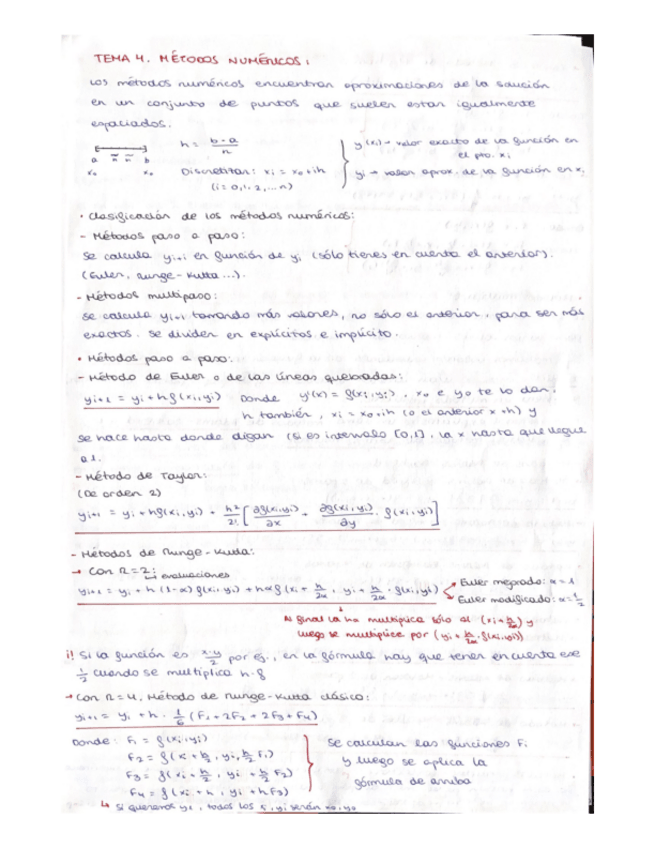 TEMA 4. MÉTODOS NUMÉRICOS:
Los métodos numéricos encuentran aproximaciones de la solución
en un conjunto de puntos que suelen estar igualmente
espaciados.
h = b-a/n
y(xi) → valor exacto de la función en el pto. xi
a n n b
x₀ x₀
Discretizar: xi = x₀+ih
(i = 0,1,2,...n)
yi → valor aprox. de la función en xi
• Clasificación de los métodos numéricos:
- Métodos paso a paso:
Se calcula yi+1 en función de yi (sólo tienes en cuenta el anterior).
(Euler, Runge-Kutta...).
- Métodos multipaso:
Se calcula yi+1 tomando más valores, no sólo el anterior, para ser más
exactos. Se dividen en explícitos e implícito.
• Métodos paso a paso:
- Método de Euler o de las líneas quebradas:
yi+1 = yi + hf(xi,yi) Donde y'(x) = f(xi,yi), x₀ e y₀ te lo dan.
h también, xi = x₀+ih (o el anterior x+h) y
se hace hasta donde digan (si es intervalo [0,1], la x hasta que llegue
a 1.
- Método de Taylor:
(De orden 2)
yi+1 = yi + hf(xi,yi) + h²/2! [∂f(xi,yi)/∂x + ∂f(xi,yi)/∂y · f(xi,yi)]
- Métodos de Runge-Kutta:
→ Con R=2:
↳ evaluaciones
yi+1 = yi + h(1-α) f(xi,yi) + hα f(xi + h/2α, yi + h/2α · f(xi,yi))
Euler mejorado: α=1
Euler modificado: α=1/2
Al final la hα multiplica sólo al (xi + h/2α) y
luego se multiplica por (yi + h/2α · f(xi,yi))
¡! Si la función es x·y/2 por ej., en la fórmula hay que tener en cuenta ese
1/2 cuando se multiplica h·f
→ Con R=4, Método de Runge-Kutta clásico:
yi+1 = yi + h · 1/6 (F₁ + 2F₂ + 2F₃ + F₄)
Donde: F₁ = f(xi,yi)
F₂ = f(xi + h/2, yi + h/2 F₁)
F₃ = f(xi + h/2, yi + h/2 F₂)
F₄ = f(xi + h, yi + hF₃)
Se calculan las funciones Fi
y luego se aplica la
fórmula de arriba
↳ Si queremos y₁, todos los xi, yi serán x₀, y₀